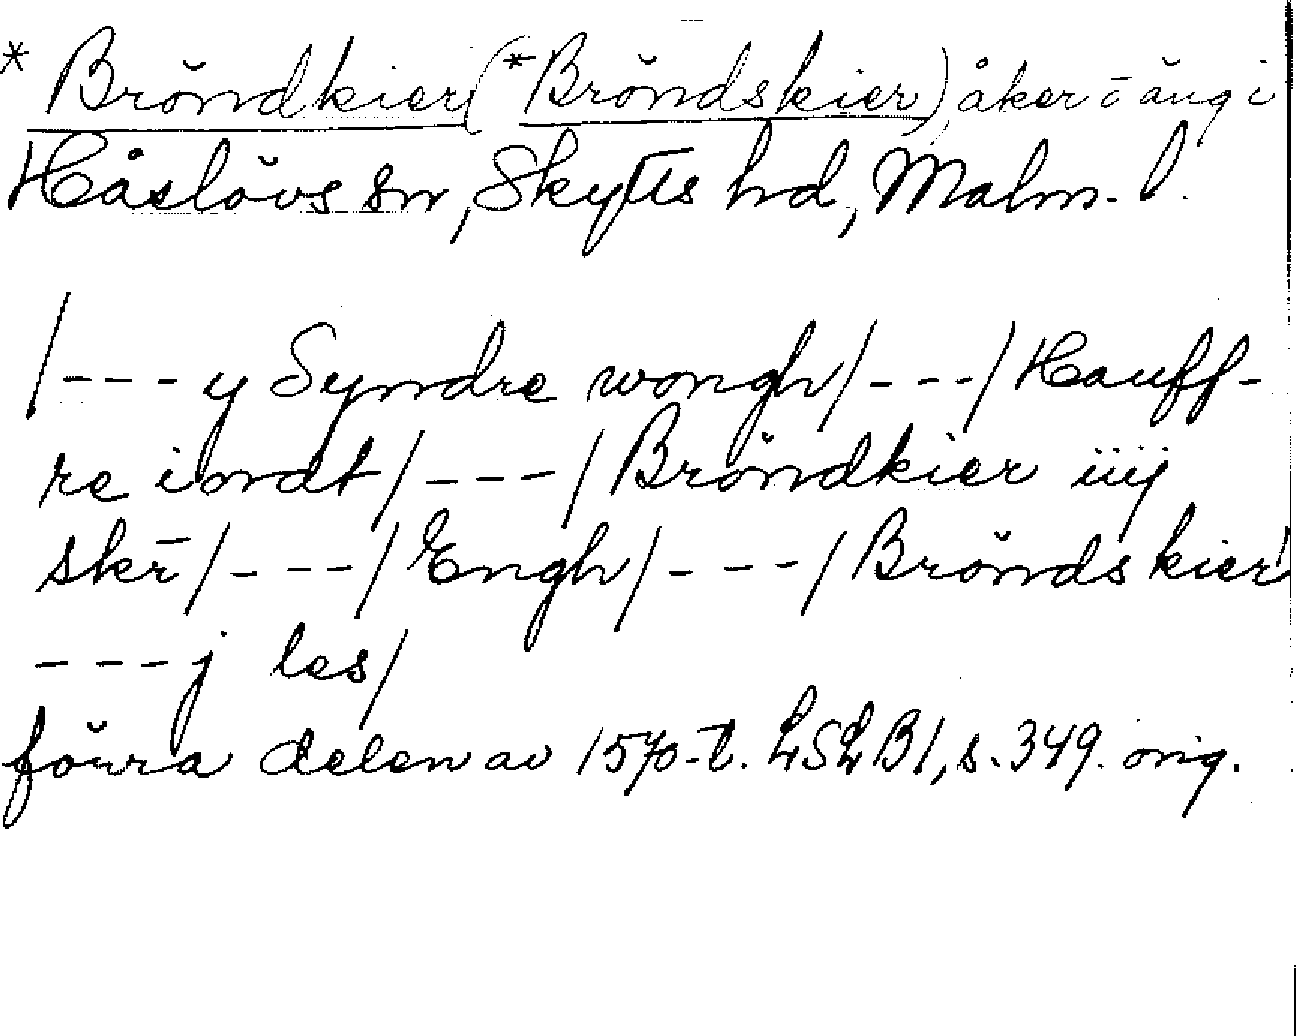 * Bröndkier (*Bröndskier), åker o äng i
Håslövs sn, Skytts hd, Malm. l.
/---y Syndre wongh/---/Hauff-
re iordt/---/Bröndkier iiij
skr̄/---/Engh/---/Bröndskier!
---j les/
förra delen av 1570-t. LSLB1, s. 349. orig.